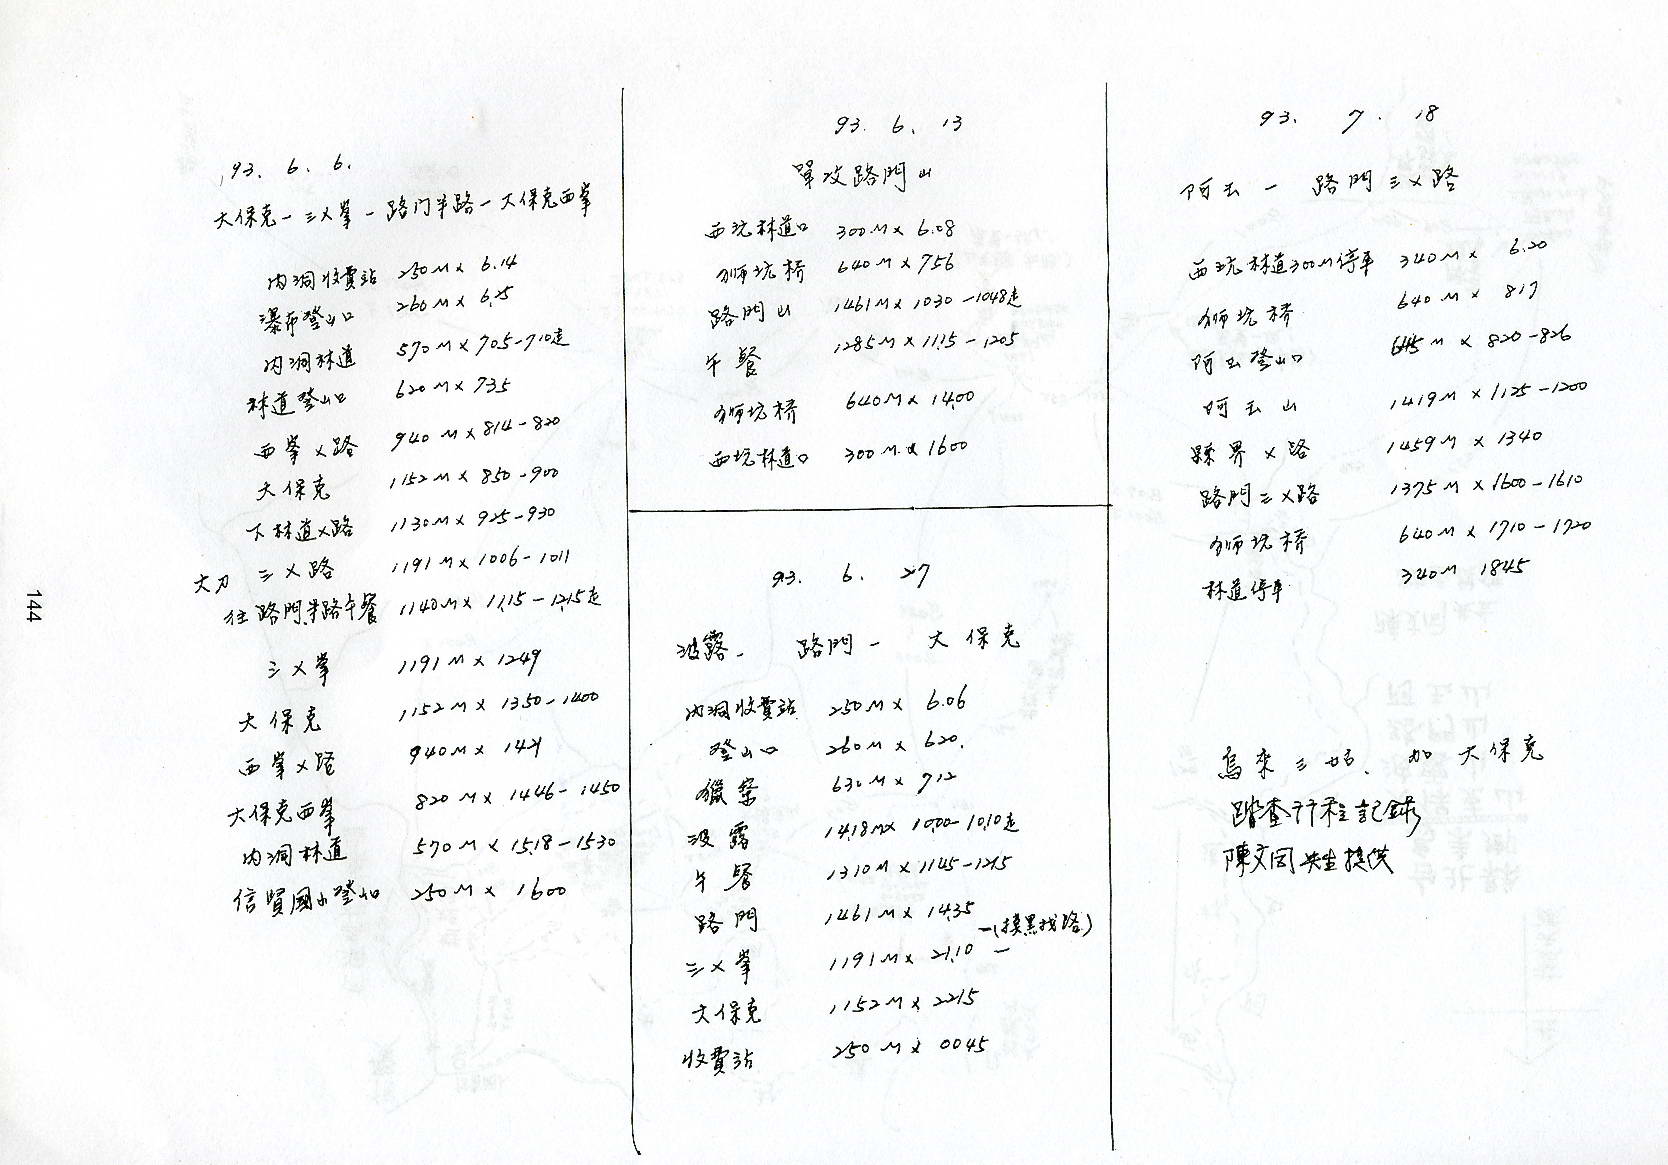 93. 6. 6.
大保克-三乂峯-路门半路-大保克西峯
内洞收費站 250M x 6.14
瀑布登山口 260M x 6.25
内洞林道 570M x 705-710走
林道登山口 620M x 735
西峯乂路 940M x 814-820
大保克 1152M x 850-900
下林道乂路 1130M x 925-930
大刀 三乂路 1191M x 1006-1011
往路門半路午餐 1140M x 11.15-12.15走
三乂峯 1191M x 1249
大保克 1152M x 1350-1400
西峯乂路 940M x 1421
大保克西峯 820M x 1446-1450
内洞林道 570M x 15.18-1530
信賢國小登山口 250M x 1600
93. 6. 13
單攻路門山
西坑林道口 300M x 6.08
獅坑桥 640M x 756
路門山 1461M x 1030-1048走
午餐 1285M x 11.15-1205
獅坑桥 640M x 14.00
西坑林道口 300M x 1600
93. 6. 27
波露- 路門- 大保克
内洞收費站 250M x 6.06
登山口 260M x 620.
獵寮 630M x 712
波露 1418M x 10.00-10.10走
午餐 1310M x 1145-1215
路門 1461M x 14.35
-(摸黑找路)
三乂峯 1191M x 21.10-
大保克 1152M x 2215
收費站 250M x 0045
93. 7. 18
阿玉- 路門三乂路
西坑林道300M停車 340M x 6.20
獅坑桥 640M x 817
阿玉登山口 645M x 820-826
阿玉山 1419M x 1125-1200
縣界乂路 1459M x 1340
路門三乂路 1375M x 1600-1610
獅坑桥 640M x 1710-1720
林道停車 340M 1845
烏來三姑、加大保克
踏查行程記錄
陳文同先生提供
144